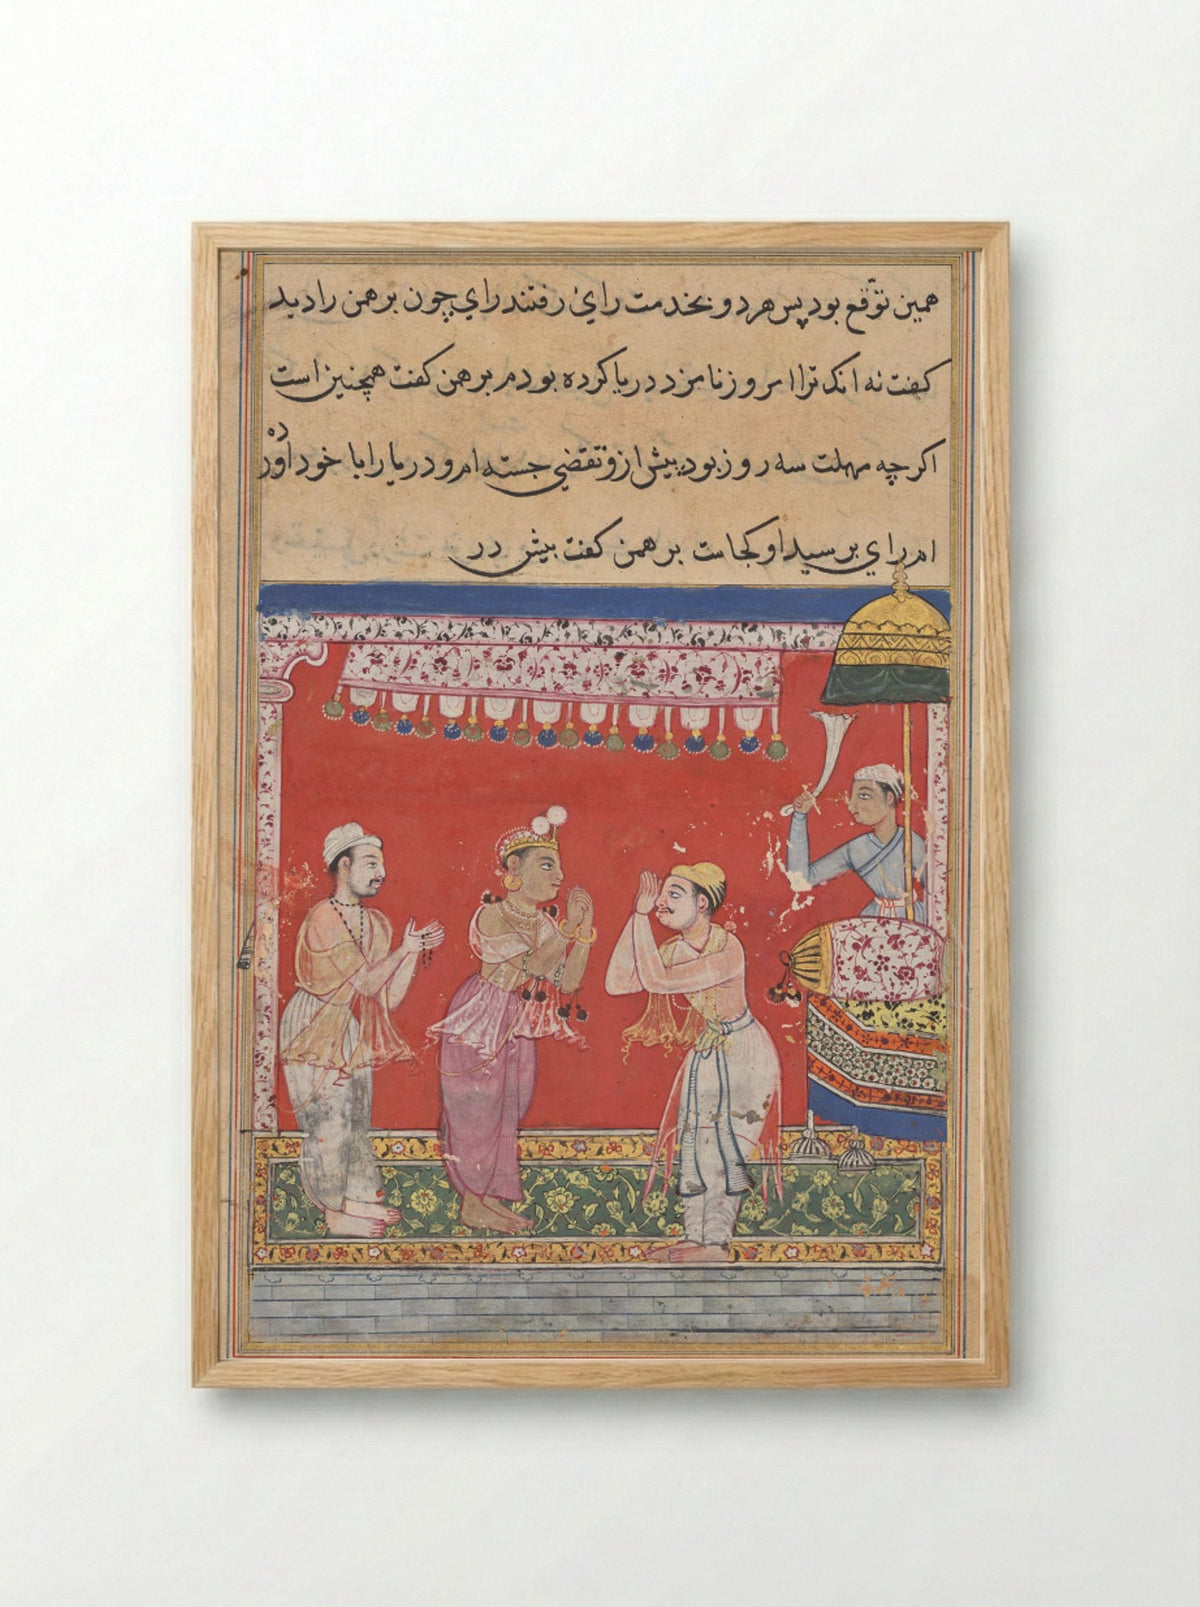 همین توّقع بود پس هر دو بخدمت رایٔ رفتند رای چون برهمن را دید
کفت نه انک ترا امروز نامزد دریا کرده بودم برهمن کفت همچنین است
اکرچه مهلت سه روز بود بیش ازو تقضی جسته ام و دریا را با خود اورده
ام رای برسید او کجاست برهمن کفت بیش در